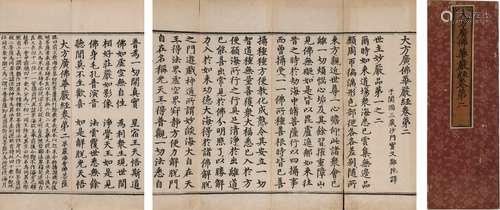 大方廣佛華嚴經卷第二
大方廣佛華嚴經卷第二
世主妙嚴品第一之二
爾時如來道場衆海悉已雲集無邊品
類周帀徧滿形色部從各各差別隨所
來方親近世尊一心瞻仰此諸衆會已
離一切煩惱心垢及其餘習摧重障山
見佛無礙如是皆以毗盧遮那如來往
昔之時於劫海中修菩薩行以四攝事
而曾攝受一一佛所種善根時皆已善
攝種種方便教化成熟令其安立一切
智道種無量善獲衆大福悉已入於方
便願海所行之行具足清淨於出離道
已能善出常見於佛分明照了以勝解
力入於如來功德大海得於諸佛解脫
之門遊戲神通所謂妙燄海大自在天
王得法界虛空界寂靜方便力解脫門
自在名稱光天王得普觀一切法悉自在
普為一切闡真實 星宿王天悟斯道
佛如虛空無自性 為利衆生現世間
相好莊嚴如影像 淨覺天王如是見
佛身毛孔普演音 法雲覆世悉無餘
聽聞莫不生歡喜
大方廣佛華嚴經卷第二